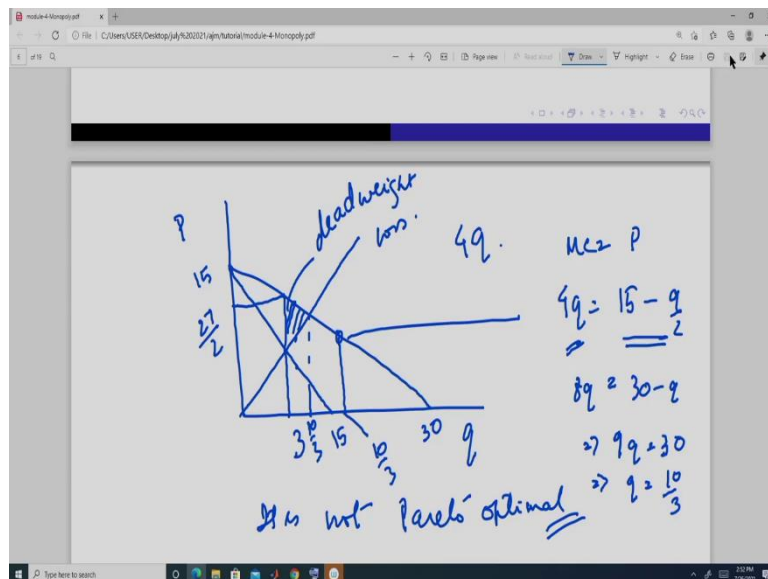 module-4-Monopoly.pdf
File | C:/Users/USER/Desktop/july%202021/ajm/tutorial/module-4-Monopoly.pdf
6 of 18
Page view
Read aloud
Draw
Highlight
Erase
deadweight
loss.
P
4q.
MC = P
15
4q = 15 - q/2
27/2
8q = 30 - q
=> 9q = 30
=> q = 10/3
3 10/3 15 10/3 30 q
It is not Pareto optimal
Type here to search
2:52 PM